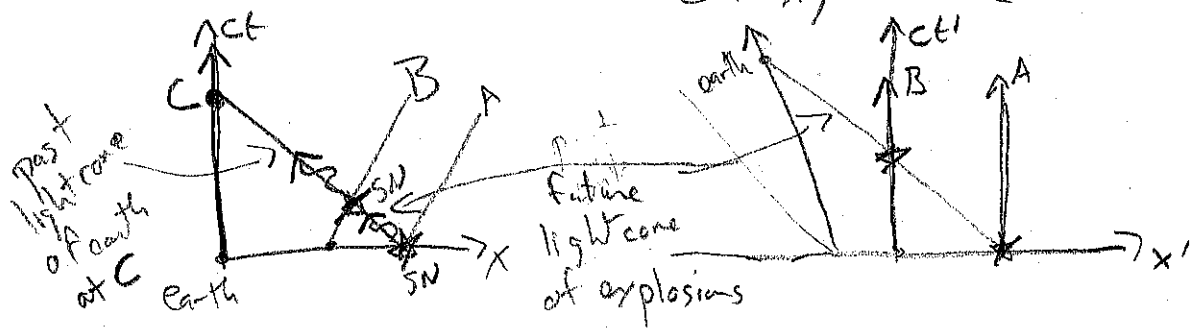 ct
C
B
A
past
light cone
of earth
at C
SN
SN
earth
x
future
light cone
of explosions
earth
ct'
B
A
x'